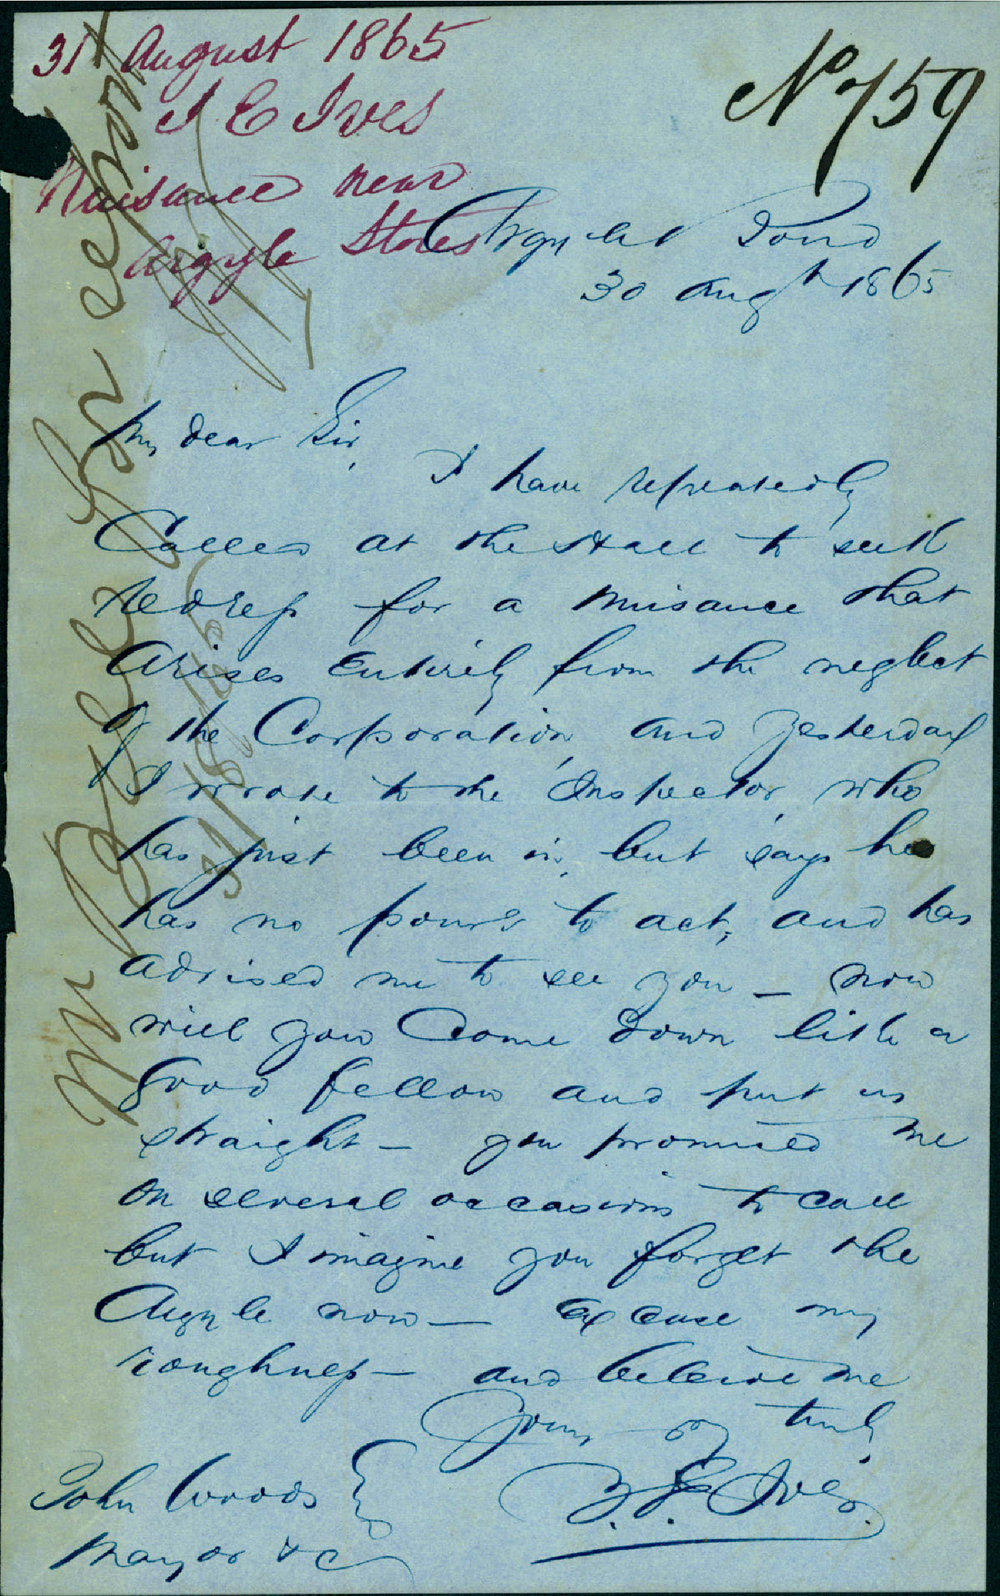 31 August 1865
I E Ives
Nuisance near
Argyle Stores
No 759
Argyle
30 Augt 1865
My dear Sir,
I have repeatedly
Called at the Hall to seek
redress for a nuisance that
arises entirely from the neglect
of the Corporation, and yesterday
I wrote to the Inspector, who
has just been in, but says he
has no power to act, and has
advised me to see you — now
will you come down like a
good fellow and put us
straight — you promised me
on several occasions to call
but I imagine you forget the
Argyle now — excuse my
roughness — and believe me
Yours truly
I. E. Ives.
John Woods Esq
Mayor &c
Mr Bell for report
31/8/65